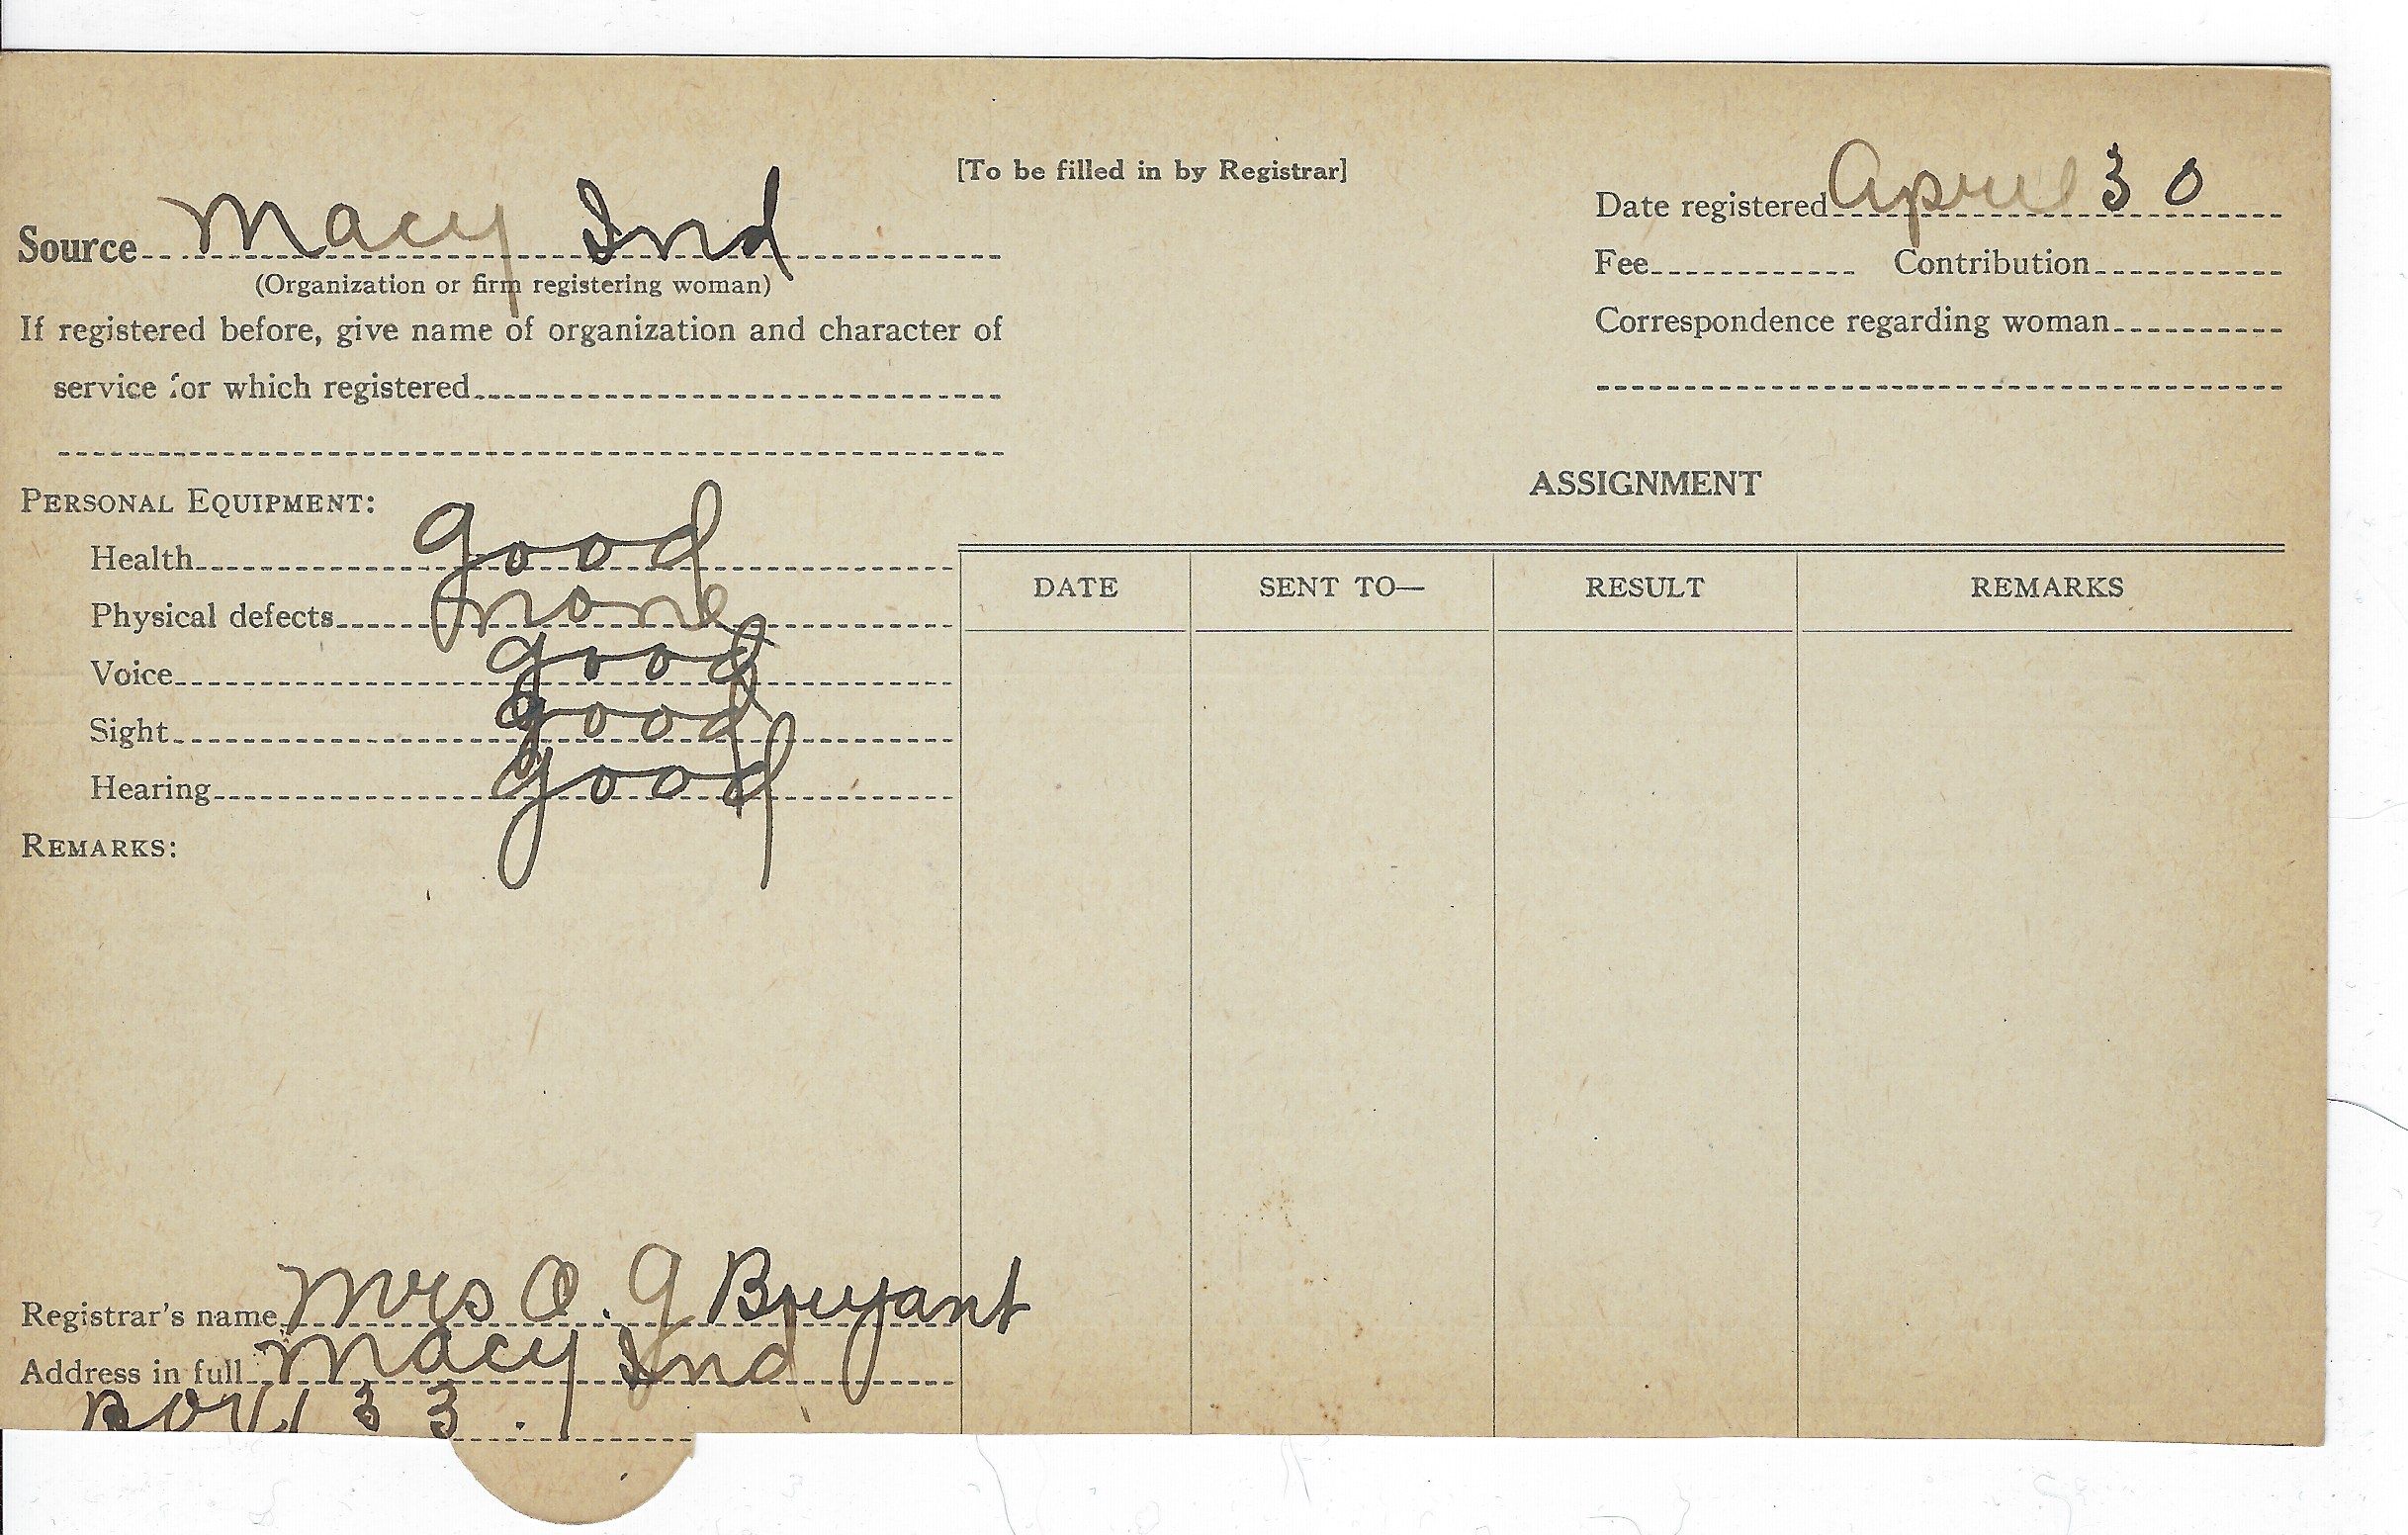 [To be filled in by Registrar]
Source Macy Ind
(Organization or firm registering woman)
If registered before, give name of organization and character of
service for which registered
Date registered April 30
Fee Contribution
Correspondence regarding woman
PERSONAL EQUIPMENT:
Health good
Physical defects none
Voice good
Sight good
Hearing good
REMARKS:
ASSIGNMENT
DATE SENT TO— RESULT REMARKS
Registrar's name Mrs O. G Bryant
Address in full Macy Ind
Box 133.